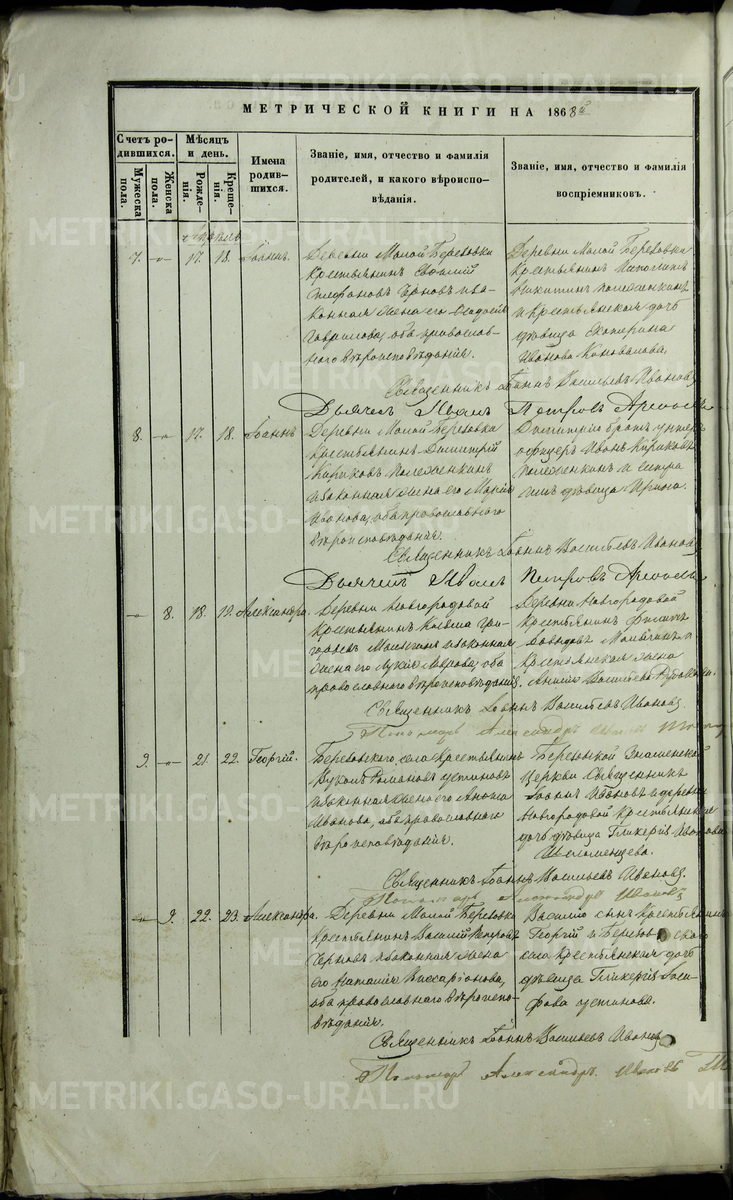 МЕТРИЧЕСКОЙ КНИГИ НА 1868й
Счетъ ро-
дившихся.
Мужеска
пола.
Женска
пола.
Мѣсяцъ
и день.
Рожде-
нія.
Креще-
нія.
Имена
родив-
шихся.
Званіе, имя, отчество и фамилія
родителей, и какого вѣроиспо-
вѣданія.
Званіе, имя, отчество и фамилія
воспріемниковъ.
7. 17. 18. Іоаннъ.
Деревни Малой Березовки
крестьянинъ
Черновъ и за-
конная жена его
Гаврилова, оба православ-
наго вѣроисповѣданія.
Деревни Малой Березовки
крестьянинъ
Никитинъ
и крестьянская дочь
дѣвица Екатерина
Иванова Коновалова.
Священникъ Іоаннъ Васильевъ Ивановъ
Дьячекъ Петровъ
8. 17. 18. Іоаннъ
Деревни Малой Березовки
крестьянинъ Димитрій
Кириковъ
и законная жена его Марія
Иванова, оба православнаго
вѣроисповѣданія.
Димитрія братъ унтеръ
офицеръ Иванъ Кириковъ
и сестра
дѣвица Ирина.
Священникъ Іоаннъ Васильевъ Ивановъ
Дьячекъ Петровъ
8. 18. 19. Александра.
Деревни Новгородовой
крестьянинъ Козьма Гри-
горьевъ и законная
жена его Лукія Лаврова, оба
православнаго вѣроисповѣданія.
Деревни Новгородовой
крестьянинъ Филипъ
Давыдовъ и
крестьянская жена
Анисія Васильева
Священникъ Іоаннъ Васильевъ Ивановъ.
Пономарь Александръ Ивановъ
9. 21. 22. Георгій.
Березовскаго села крестьянинъ
Вуколъ Романовъ Устиновъ
и законная жена его
Иванова, оба православнаго
вѣроисповѣданія.
Березовской Знаменской
церкви священникъ
Іоаннъ Ивановъ и деревни
Новгородовой крестьянская
дочь дѣвица Гликерія Иванова
Священникъ Іоаннъ Васильевъ Ивановъ.
Пономарь Александръ Ивановъ
9. 22. 23. Александра.
Деревни Малой Березовки
крестьянинъ Василій Петровъ
Черновъ и законная жена
его Наталія Виссаріонова,
оба православнаго вѣроиспо-
вѣданія.
Василія сынъ крестьянинъ
Георгій и Березовскаго
села крестьянская дочь
дѣвица Гликерія Іоси-
фова Устинова.
Священникъ Іоаннъ Васильевъ Ивановъ
Пономарь Александръ Ивановъ
METRIKI.GASO-URAL.RU